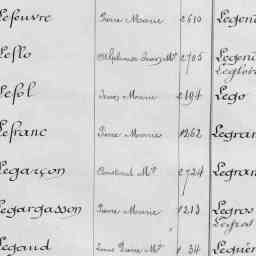 Lefeuvre Pierre Marie 2610 Legen
Leflo Alphonse Louis Mie 2705 Legen
Lefol Louis Marie 2194 Lego
Lefranc Pierre Marie 1262 Legran
Legarçon Constant Mie 2724 Legran
Legargasson Pierre Marie 1213 Legros
Legaud Pierre Mie 34 Leguér